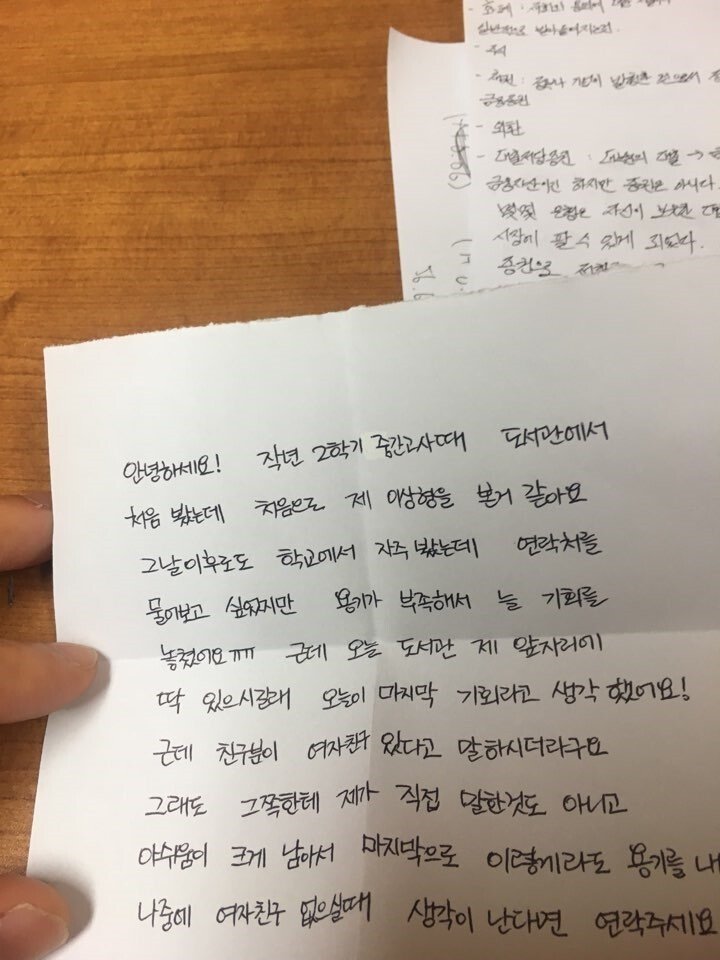 일반적으로 받아들여지는것.
- 주식
금융증권
- 외환
- 대출저당증권 : 대출 →
금융자산이긴 하지만 증권은 아니다.
몇몇 은행은 자신이 보유한
시장에 팔 수 있게 되었다.
증권으로
안녕하세요! 작년 2학기 중간고사때 도서관에서
처음 봤는데 처음으로 제 이상형을 본거 같아요
그날이후로도 학교에서 자주 봤는데 연락처를
물어보고 싶었지만 용기가 부족해서 늘 기회를
놓쳤어요ㅠㅠ 근데 오늘 도서관 제 앞자리에
딱 있으시길래 오늘이 마지막 기회라고 생각 했어요!
근데 친구분이 여자친구 있다고 말하시더라구요
그래도 그쪽한테 제가 직접 말한것도 아니고
아쉬움이 크게 남아서 마지막으로 이렇게라도 용기를 내
나중에 여자친구 없으실때 생각이 난다면 연락주세요